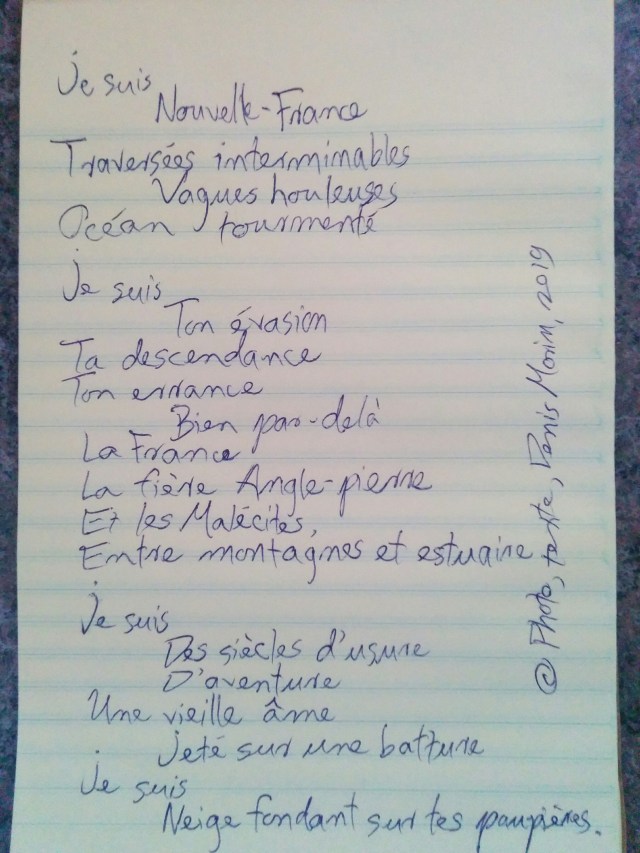 Je suis
Nouvelle-France
Traversées interminables
Vagues houleuses
Océan tourmenté
Je suis
Ton évasion
Ta descendance
Ton errance
Bien par-delà
La France
La fière Angle-pierre
Et les Malécites,
Entre montagnes et estuaire
Je suis
Des siècles d'usure
D'aventure
Une vieille âme
Jeté sur une batture
Je suis
Neige fondant sur tes paupières.
@ Photo, texte, Denis Morin, 2019